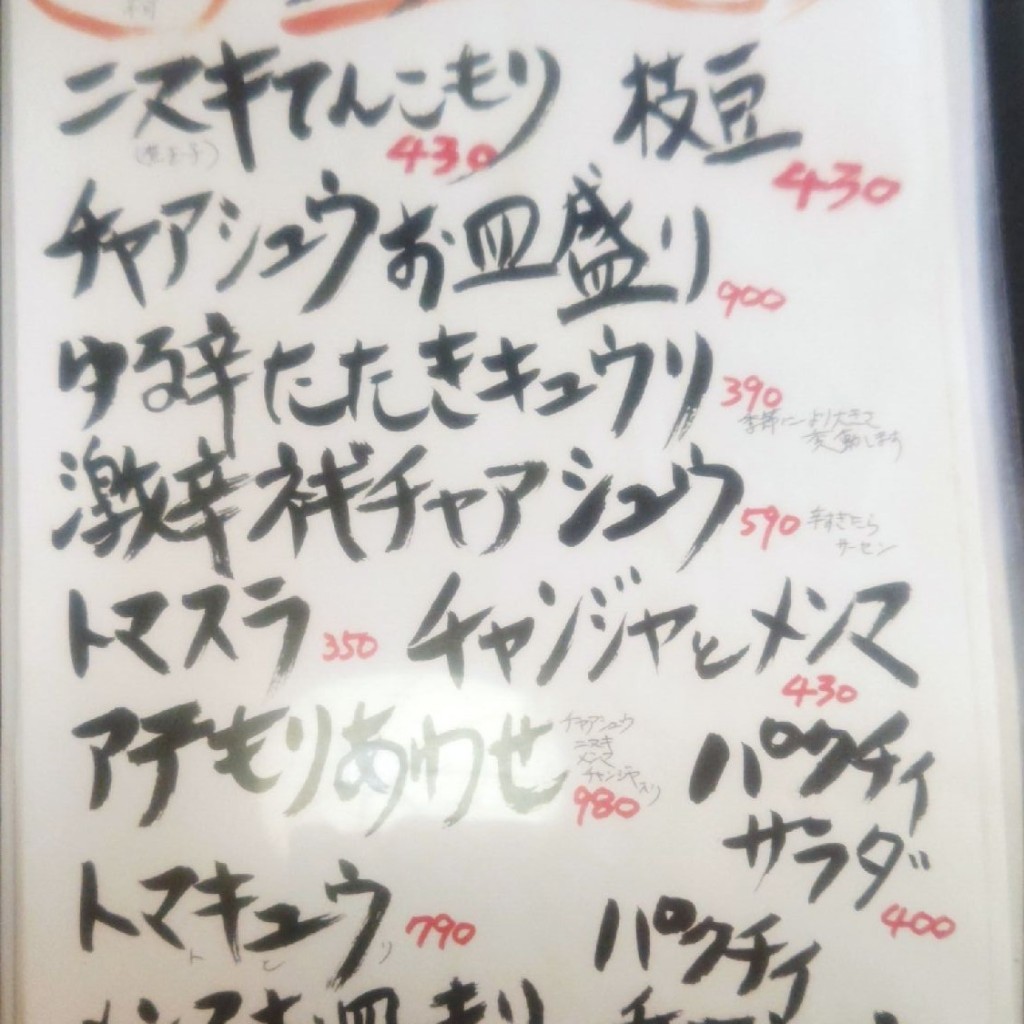 ニヌキてんこもり 430
枝豆 430
チャアシュウお皿盛り 900
ゆる辛たたきキュウリ 390
季節により大きさ
変動します
激辛ネギチャアシュウ 590
辛すぎたら
サーセン
トマスラ 350
チャンジャとメンマ 430
アテもりあわせ 980
チャアシュウ
ニヌキ
メンマ
チャンジャ入り
パクチィ
サラダ 400
トマキュウ 790
パクチィ
メンマお皿もり